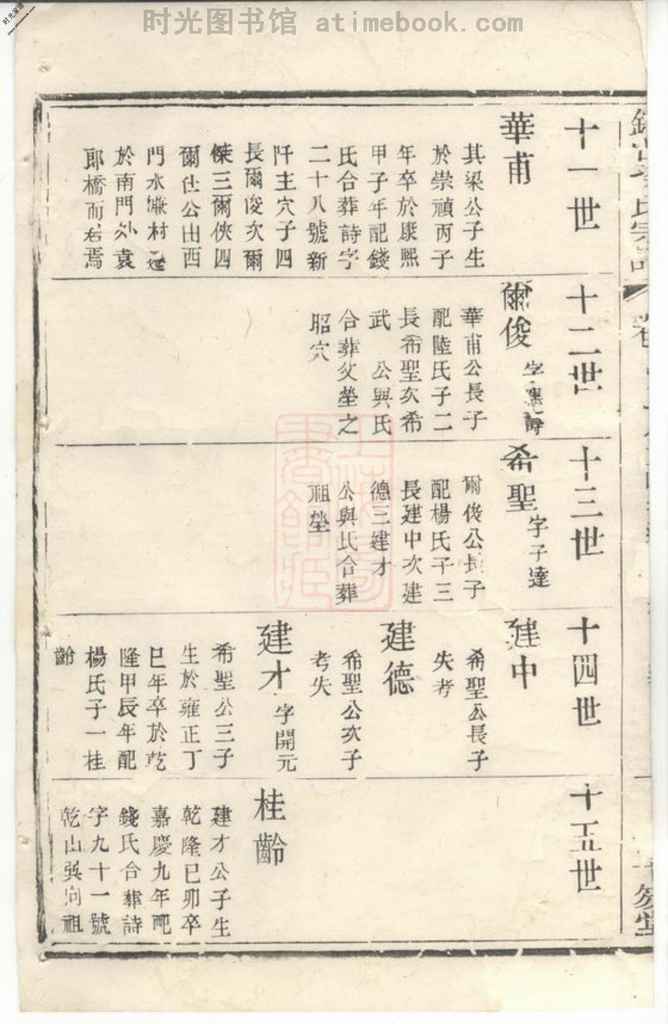 时光图书馆 atimebook.com
时光图书馆
十一世
華甫
其梁公子生
於崇禎丙子
年卒於康熙
甲子年配錢
氏合葬詩字
二十八號新
阡主穴子四
長爾俊次爾
傑三爾俠四
爾仕公由西
門水塘村遷
於南門外袁
郎橋而居焉
十二世
爾俊
華甫公長子
配陸氏子二
長希聖次希
武 公與氏
合葬父塋之
昭穴
十三世
希聖 字子達
爾俊公長子
配楊氏子三
長建中次建
德三建才
公與氏合葬
祖塋
十四世
建中
希聖公長子
失考
建德
希聖公次子
考失
建才 字開元
希聖公三子
生於雍正丁
巳年卒於乾
隆甲辰年配
楊氏子一桂
齡
十五世
桂齡
建才公子生
乾隆己卯卒
嘉慶九年配
錢氏合葬詩
字九十一號
乾山巽向祖